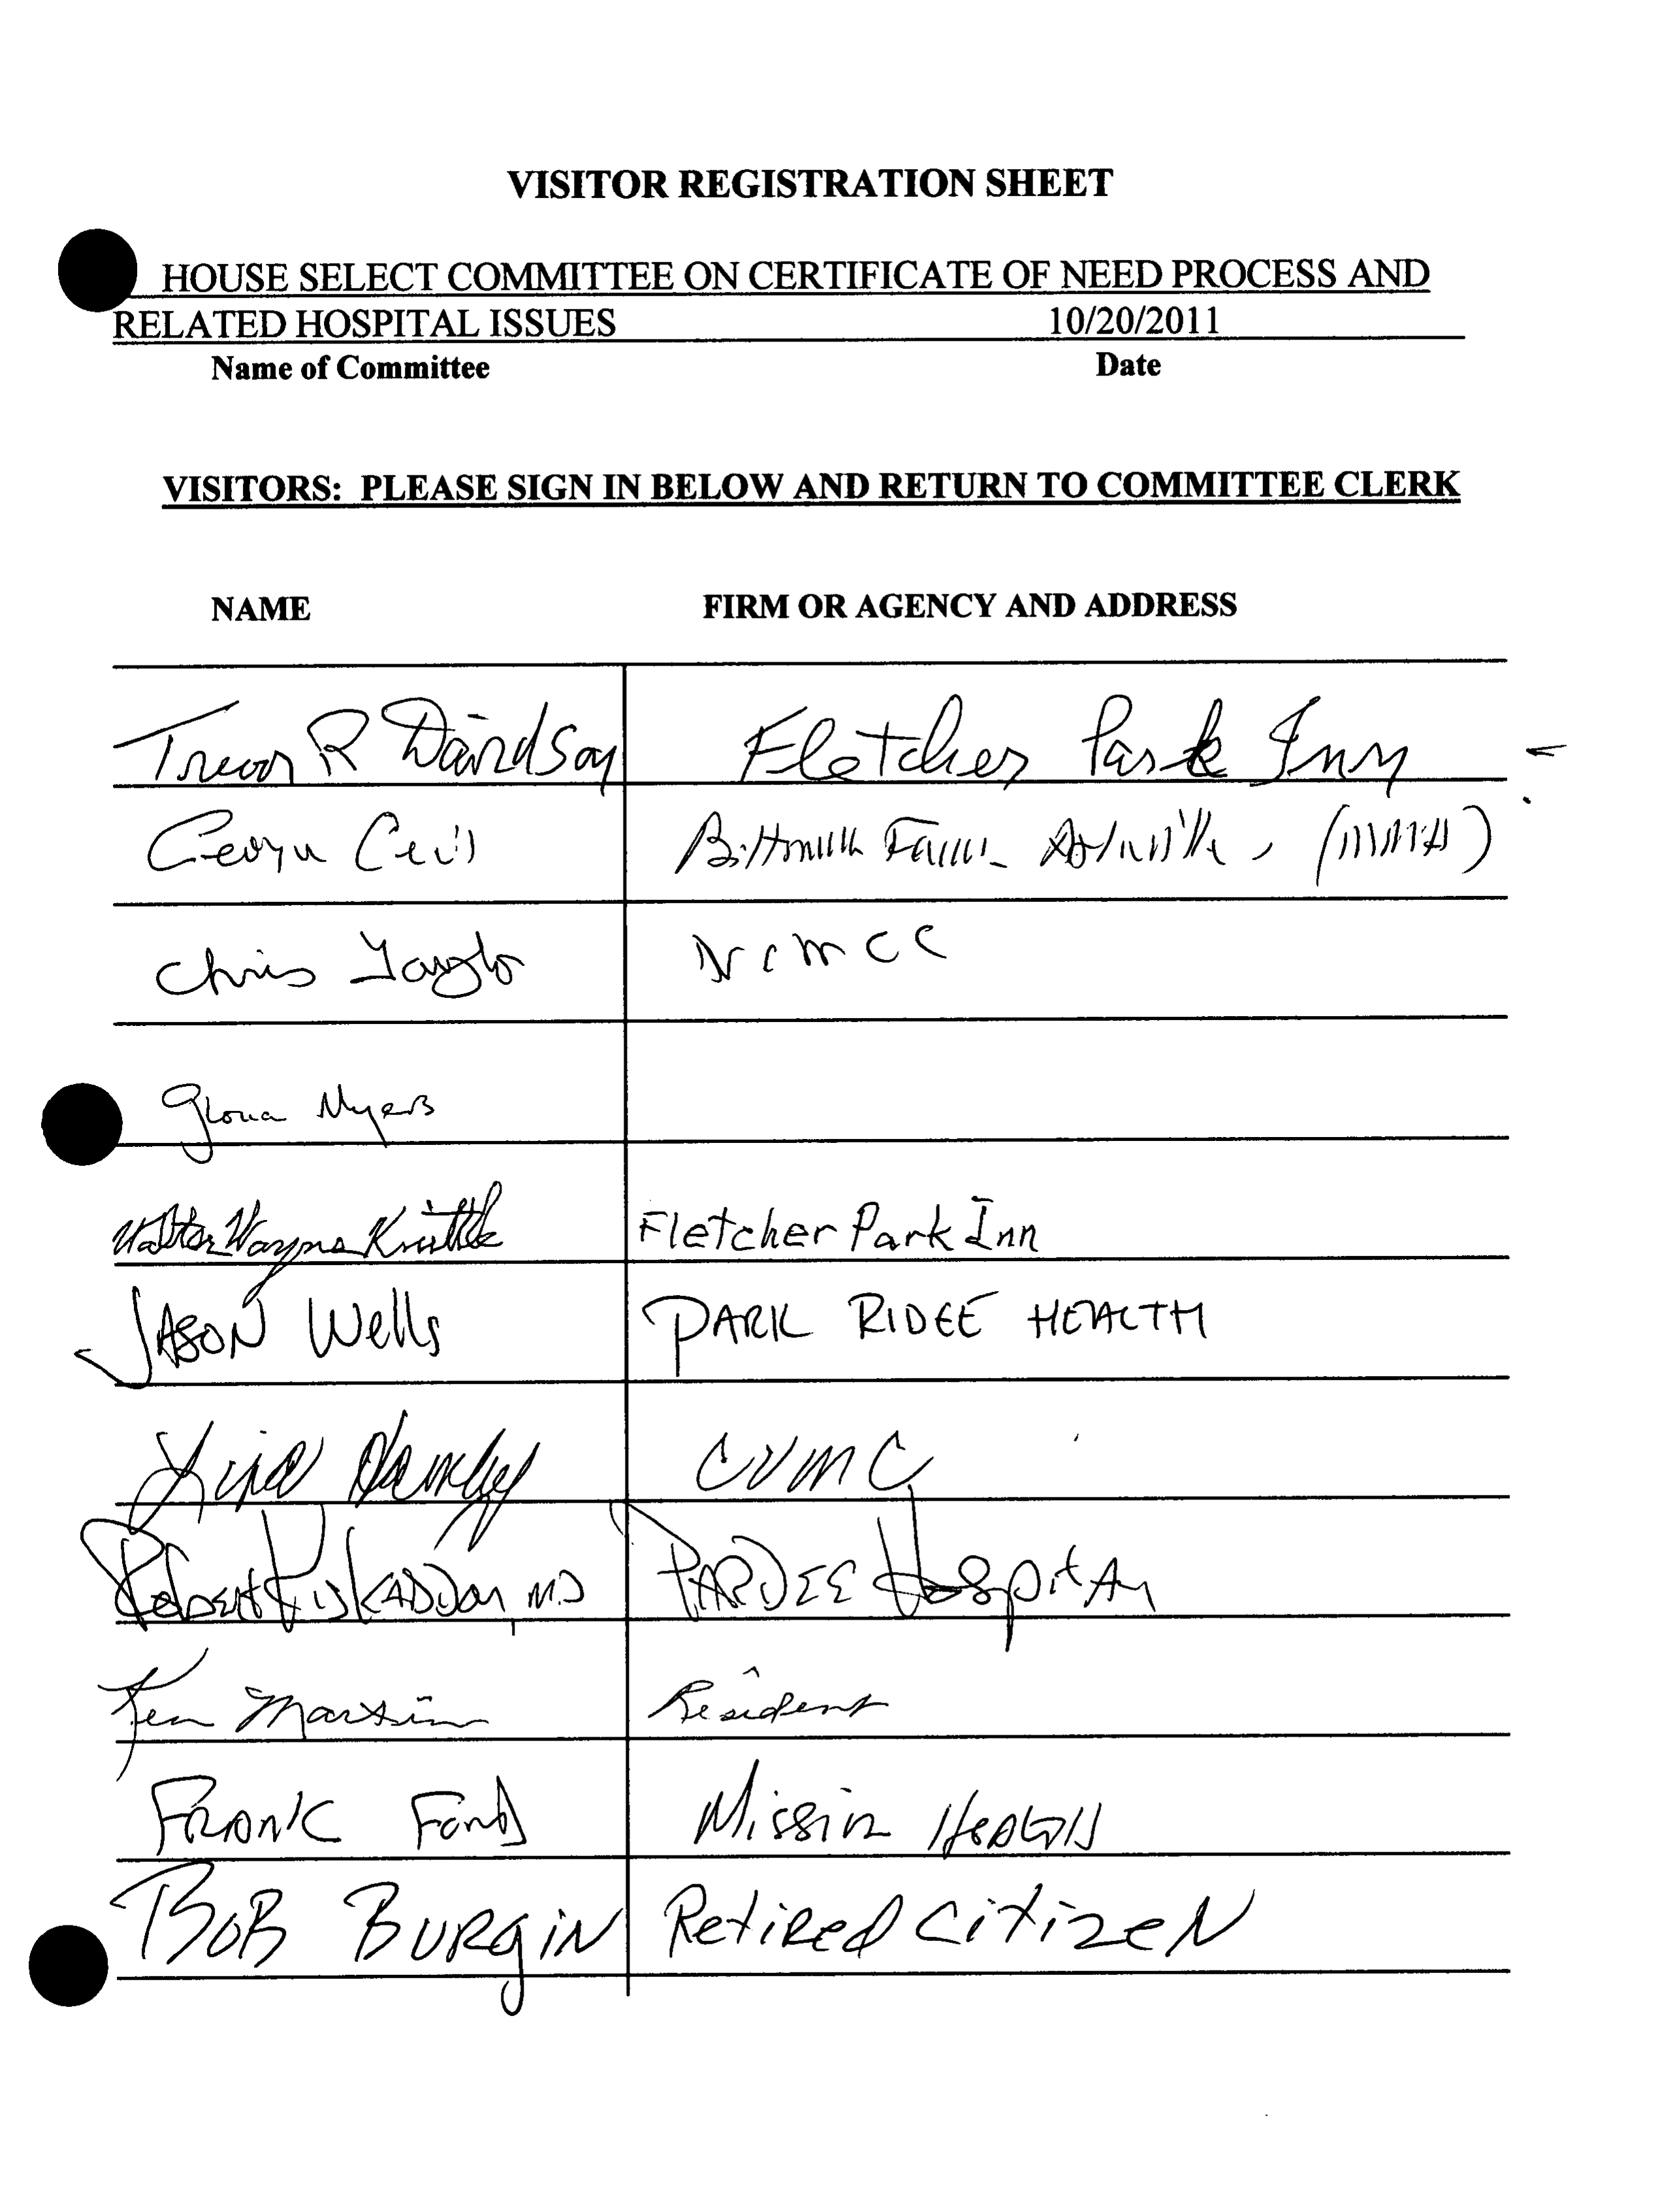 VISITOR REGISTRATION SHEET
HOUSE SELECT COMMITTEE ON CERTIFICATE OF NEED PROCESS AND
RELATED HOSPITAL ISSUES 10/20/2011
Name of Committee Date
VISITORS: PLEASE SIGN IN BELOW AND RETURN TO COMMITTEE CLERK
NAME FIRM OR AGENCY AND ADDRESS
Trevor R Davidson Fletcher Park Inn
Cecil Farms
Chris Taylor NCMCC
Gloria Myers
Walter Wayne Fletcher Park Inn
JASON Wells PARK RIDGE HEALTH
CVMC
Robert M.D PARDEE Hospital
Ken Martin Resident
FRANK Mission Health
BOB BURgiN Retired citizeN